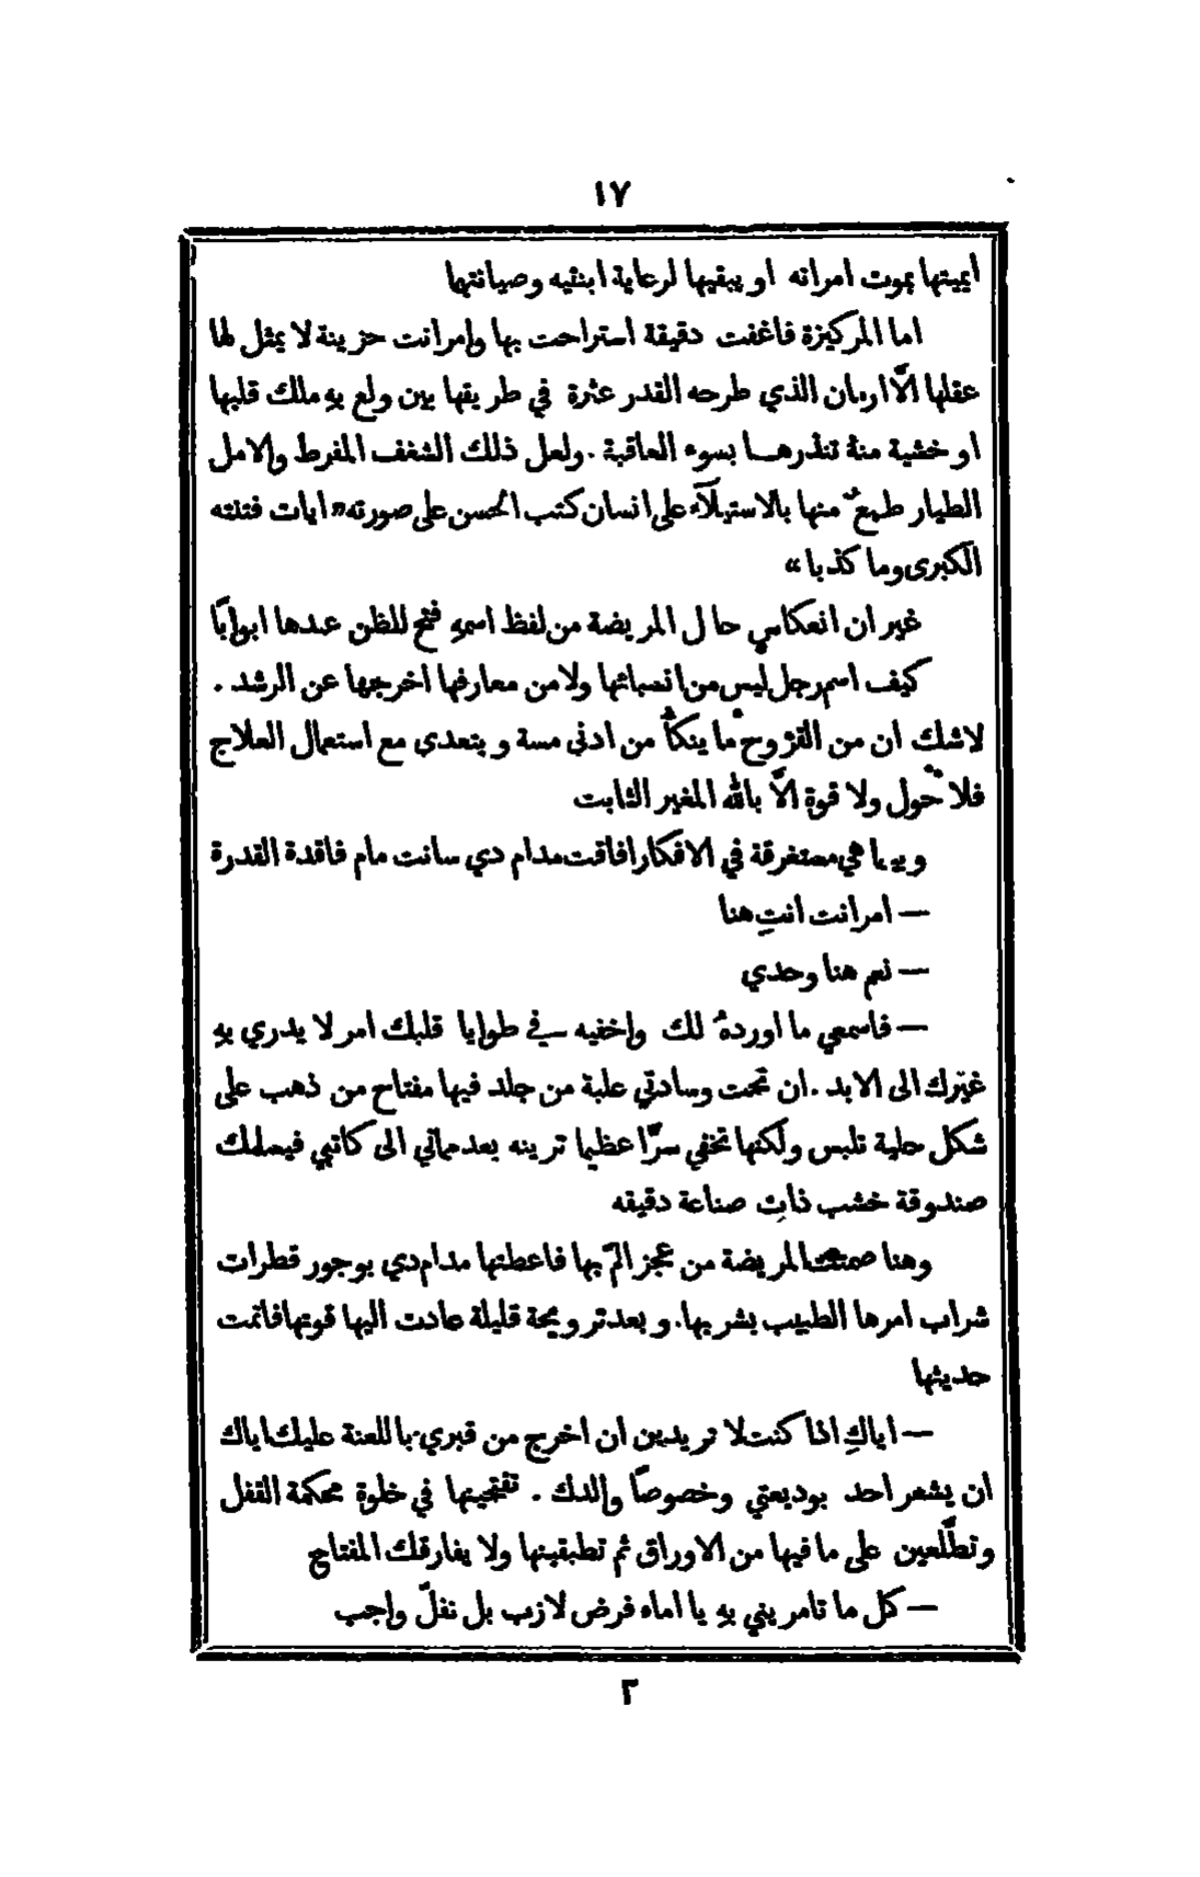 ١٧
ايميتها بموت امراته او يبقيها لرعاية ابنتيه وصيانتها
اما المركيزة فاغفت دقيقة استراحت بها وامرانت حزينة لا يمثل لها
عقلها الّا ارمان الذي طرحه القدر عثرة في طريقها بين ولع به ملك قلبها
او خشية منهُ تنذرهــا بسوء العاقبة . ولعل ذلك الشغف المفرط والامل
الطيار طمعٌ منها بالاستيلآء على انسان كتب الحسن على صورته " ايات فتنته
الكبرى وما كذبا "
غير ان انعكاس حال المريضة من لفظ اسمهِ فتح للظن عندها ابوابًا
كيف اسم رجل ليس من انسبائها ولا من معارفها اخرجها عن الرشد .
لاشك ان من القروح ما ينكأُ من ادنى مسة ويتعدى مع استعمال العلاج
فلا حول ولا قوة الّا بالله المغير الثابت
وبينما هي مستغرقة في الافكار افاقت مدام دي سانت مام فاقدة القدرة
— امرانت انتِ هنا
— نعم هنا وحدي
— فاسمعي ما اوردهُ لك واخفيه في طوايا قلبك امر لا يدري به
غيرك الى الابد . ان تحت وسادتي علبة من جلد فيها مفتاح من ذهب على
شكل حلية تلبس ولكنها تخفي سرًّا عظيما ترينه بعد مماتي الى كاتبي فيسلمك
صندوقة خشب ذات صناعة دقيقه
وهنا صمتت المريضة من عجز المّ بها فاعطتها مدام دي بوجور قطرات
شراب امرها الطبيب بشربها. وبعد ترويحة قليلة عادت اليها قوتها فاتمت
حديثها
— اياكِ اذا كنت لا تريدين ان اخرج من قبري باللعنة عليك اياك
ان يشعر احد بوديعتي وخصوصًا والدك . تفتحينها في خلوة محكمة القفل
وتطّلعين على ما فيها من الاوراق ثم تطبقينها ولا يفارقك المفتاح
— كل ما تامريني به يا اماه فرض لازب بل نفلٌ واجب
٣